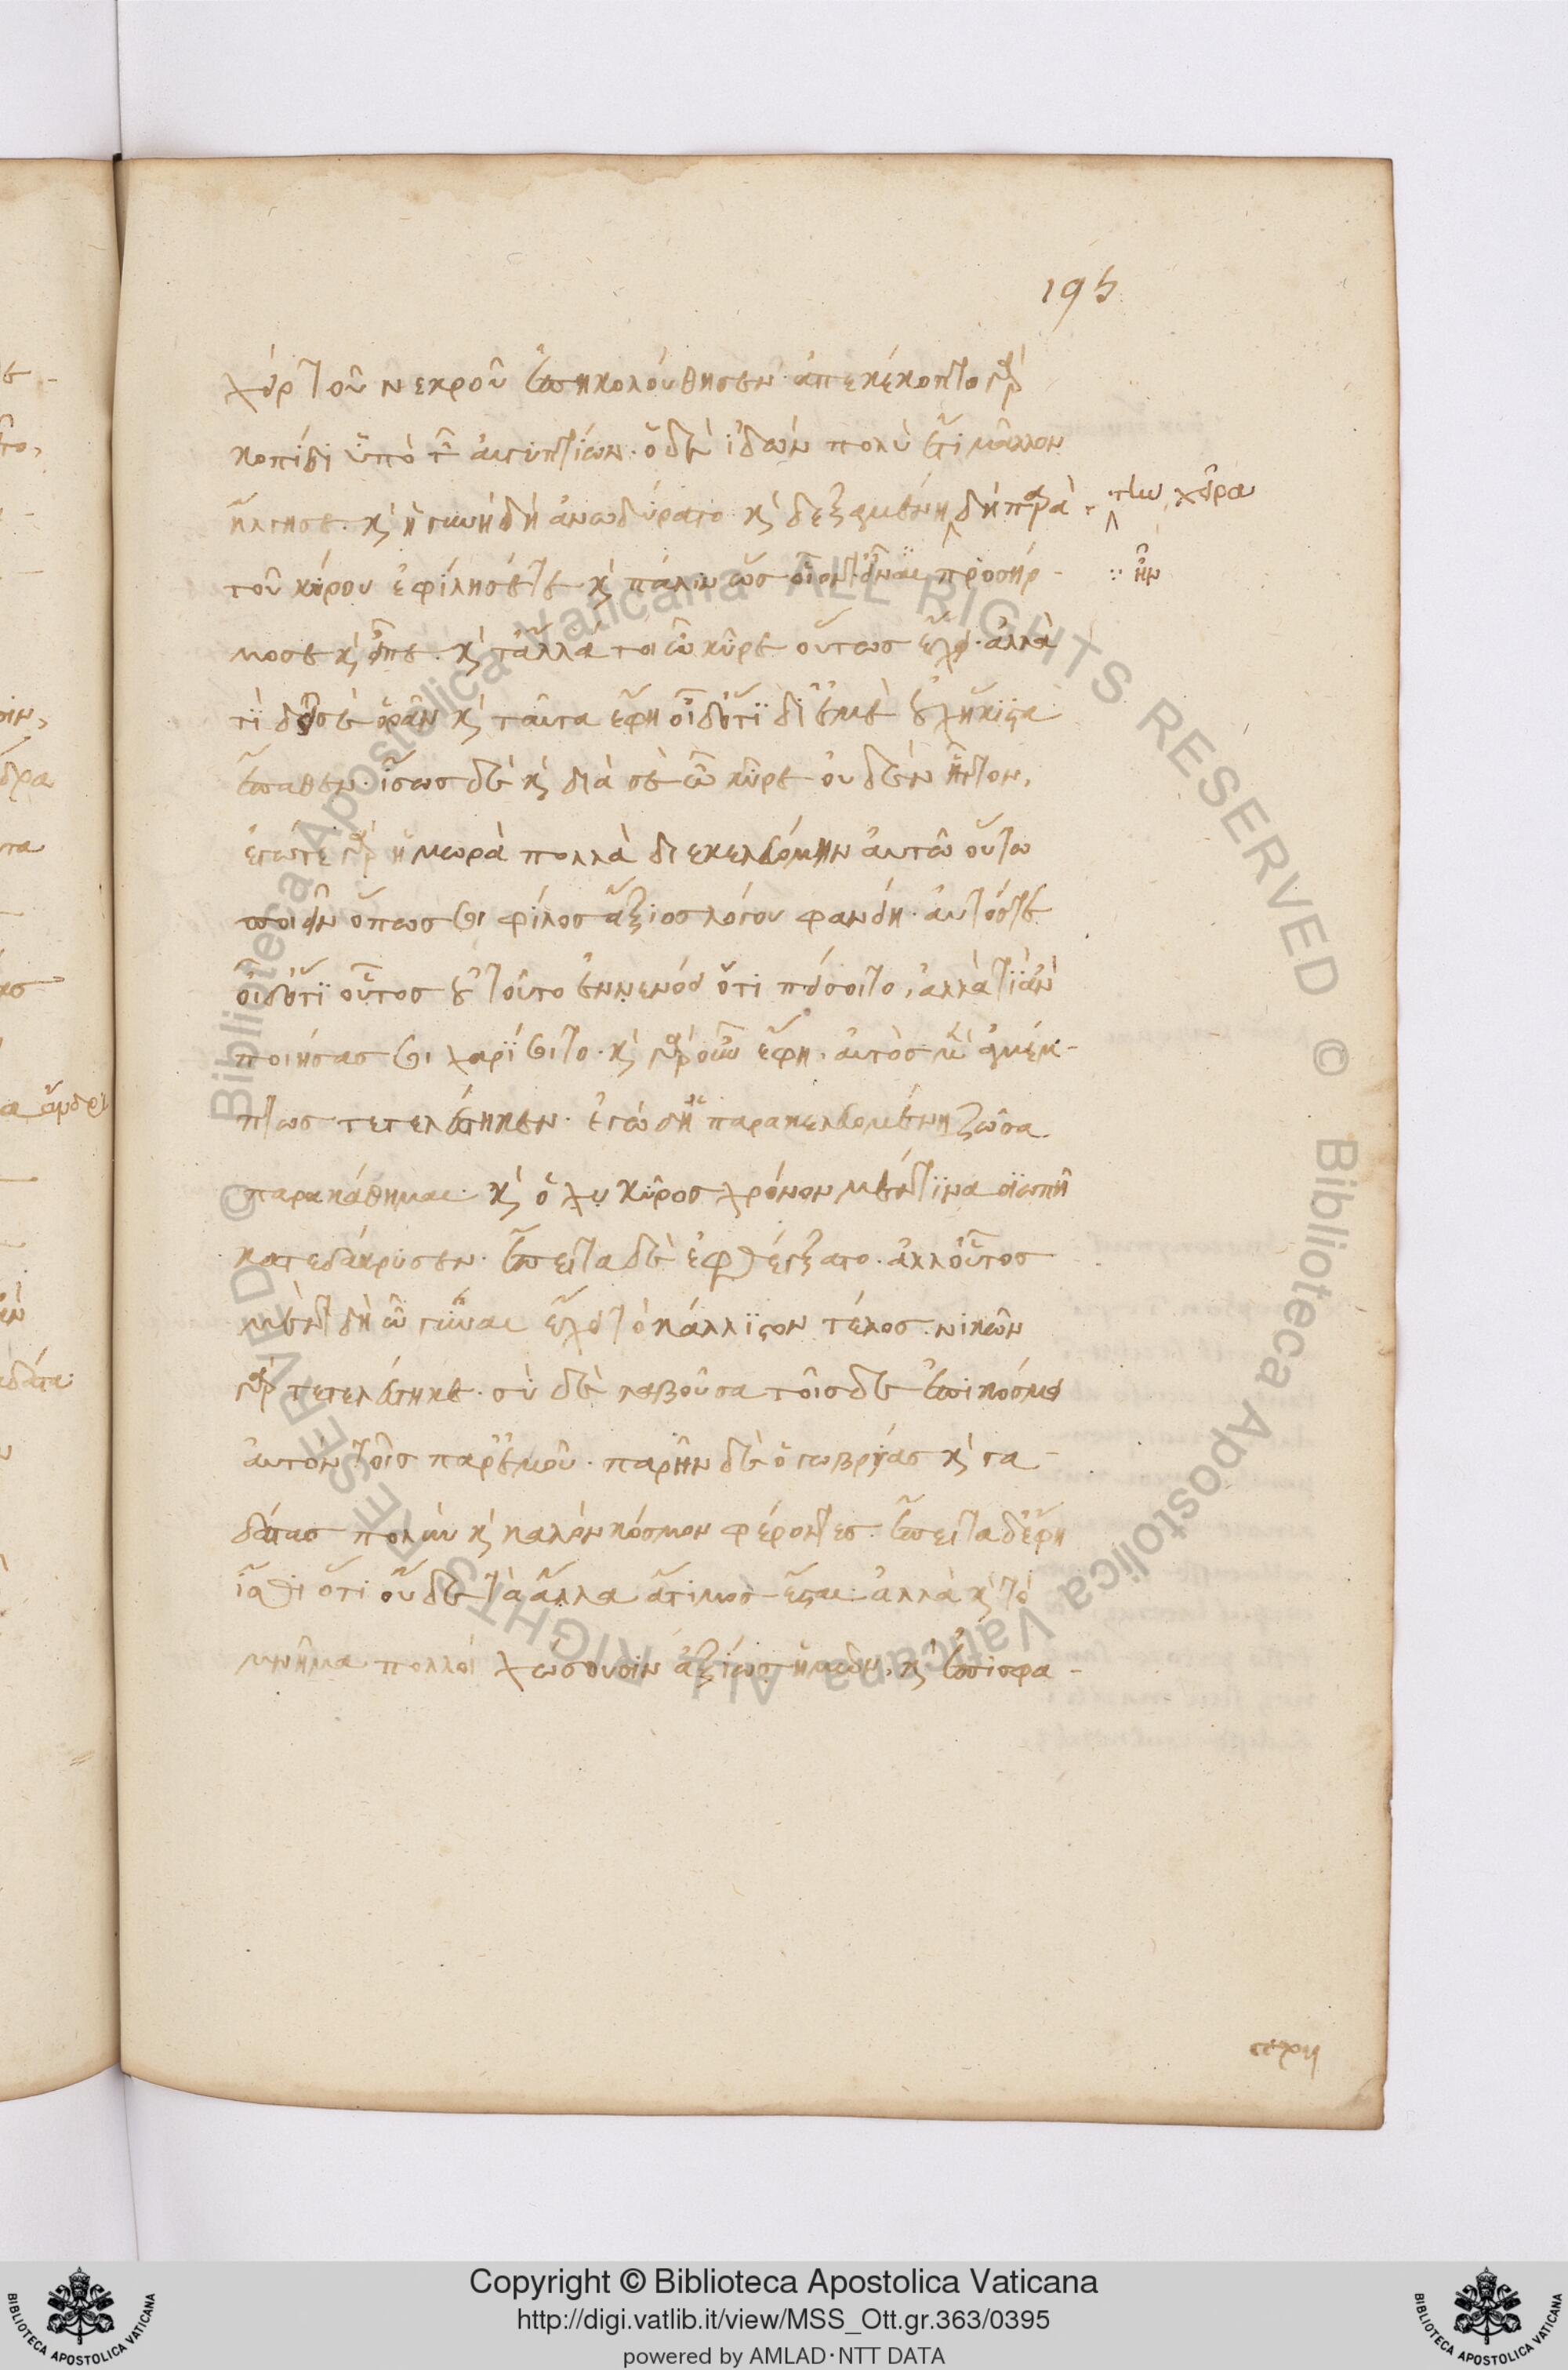 195
χεὶρ τοῦ νεκροῦ ἐπηκολούθησεν· ἀπεκέκοπτο γὰρ
κοπίδι ὑπὸ τῶν αἰγυπτίων. ὁ δὲ ἰδὼν πολὺ ἔτι μᾶλλον
ἤλγησε. καὶ ἡ γυνὴ δὴ ἀνωδύρατο καὶ δεξαμένη δὴ παρὰ
τὴν χεῖρα
τοῦ κύρου ἐφίλησέ τε καὶ πάλιν ὡς οἷόν τ' εἶναι προσήρ-
ἦν
μοσε καὶ εἶπε. καὶ τἆλλά τοι ὦ κῦρε οὕτως ἔχει. ἀλλὰ
τί δεῖ σε ὁρᾶν καὶ ταῦτα ἔφη οἶδ' ὅτι δι' ἐμὲ οὐχ ἥκιστα
ἔπαθεν. ἴσως δὲ καὶ διὰ σὲ ὦ κῦρε οὐδὲν ἧττον.
ἐγώ τε γὰρ ἡ μωρὰ πολλὰ διεκελευόμην αὐτῷ οὕτω
ποιεῖν ὅπως σοι φίλος ἄξιος λόγου φανείη. αὐτός τε
οἶδ' ὅτι οὗτος οὐ τοῦτο ἐννενόει ὅτι πείσοιτο, ἀλλὰ τί ἂν
ποιήσας σοι χαρίσοιτο. καὶ γὰρ οὖν ἔφη. αὐτὸς μὲν ἀμέμ-
πτως τετελεύτηκεν. ἐγὼ δ' ἡ παρακελευομένη ζῶσα
παρακάθημαι. καὶ ὁ κῦρος χρόνον μέν τινα σιωπῇ
κατεδάκρυσεν. ἔπειτα δὲ ἐφθέγξατο. ἀλλ' οὗτος
μὲν δὴ ὦ γύναι ἔχει τὸ κάλλιστον τέλος. νικῶν
γὰρ τετελεύτηκε. σὺ δὲ λαβοῦσα τοῖσδε ἐπικόσμει
αὐτὸν τοῖς παρ' ἐμοῦ. παρῆν δὲ ὁ γωβρύας καὶ γα-
δάτας πολὺν καὶ καλὸν κόσμον φέροντες. ἔπειτα δ' ἔφη
ἴσθι ὅτι οὐδὲ τὰ ἄλλα ἄτιμος ἔσται. ἀλλὰ καὶ τὸ
μνῆμα πολλοὶ χώσουσιν ἀξίως ἡμῶν. καὶ ἐπισφα-
Copyright © Biblioteca Apostolica Vaticana
http://digi.vatlib.it/view/MSS_Ott.gr.363/0395
powered by AMLAD·NTT DATA